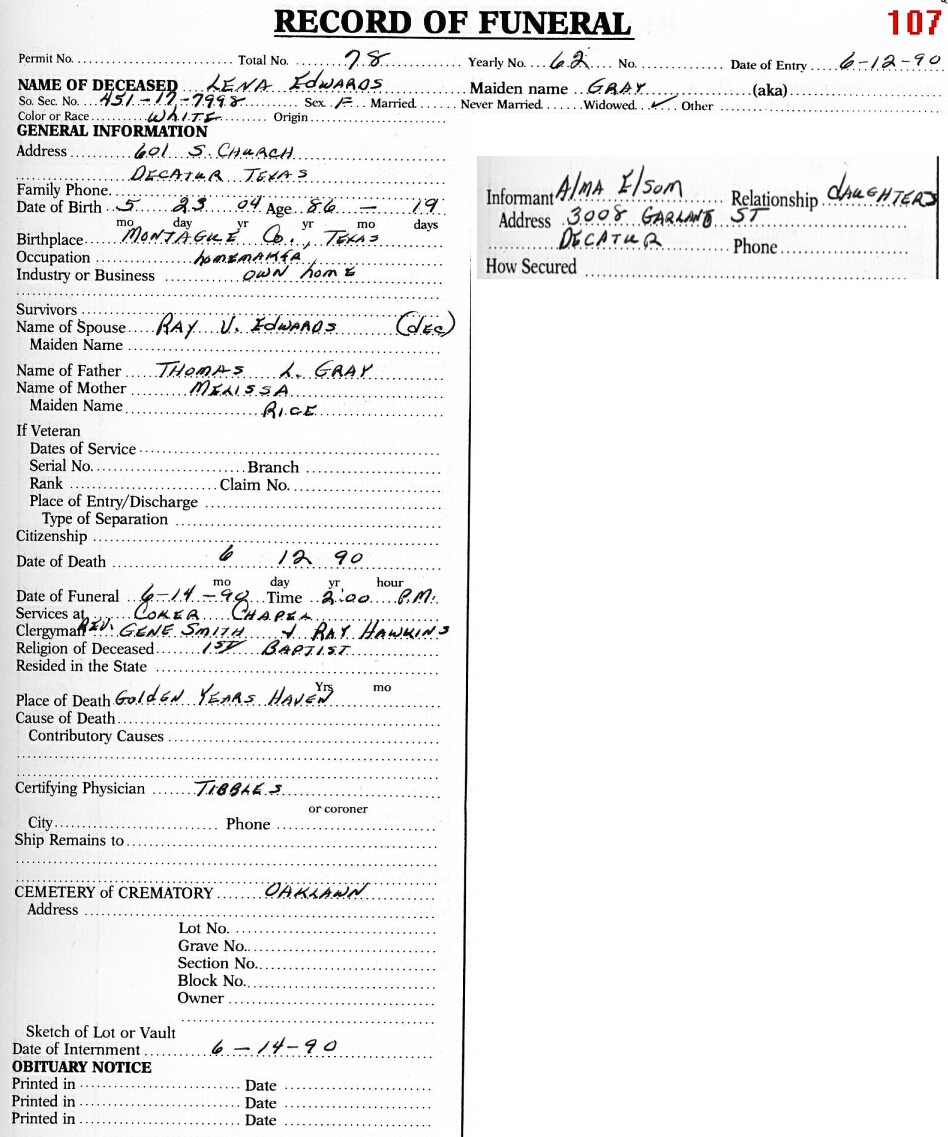 RECORD OF FUNERAL
107
Permit No. Total No. 78 Yearly No. 62 No. Date of Entry 6-12-90
NAME OF DECEASED LENA EDWARDS Maiden name GRAY (aka)
So. Sec. No. 451-17-7998 Sex F Married Never Married Widowed ✓ Other
Color or Race WHITE Origin
GENERAL INFORMATION
Address 601 S. CHURCH
DECATUR TEXAS
Family Phone
Date of Birth 5 23 04 Age 86 — 19
mo day yr yr mo days
Birthplace MONTAGUE Co., TEXAS
Occupation homEMAKER
Industry or Business OWN homE
Survivors
Name of Spouse RAY V. EDWARDS (dEC)
Maiden Name
Name of Father THOMAS L. GRAY
Name of Mother MELISSA
Maiden Name RICE
If Veteran
Dates of Service
Serial No. Branch
Rank Claim No.
Place of Entry/Discharge
Type of Separation
Citizenship
Date of Death 6 12 90
mo day yr hour
Date of Funeral 6-14-90 Time 2:00 P.M.
Services at COKER CHAPEL
Clergyman REV. GENE SMITH & RAY HAWKINS
Religion of Deceased 1ST BAPTIST
Resided in the State
Yrs mo
Place of Death GOldEN YEARS HAVEN
Cause of Death
Contributory Causes
Certifying Physician TIBBLES
or coroner
City Phone
Ship Remains to
CEMETERY of CREMATORY OAKLAWN
Address
Lot No.
Grave No.
Section No.
Block No.
Owner
Sketch of Lot or Vault
Date of Internment 6-14-90
OBITUARY NOTICE
Printed in Date
Printed in Date
Printed in Date
Informant AlMA ElSOM Relationship dAUGHTERS
Address 3008 GARLAND ST
DECATUR Phone
How Secured